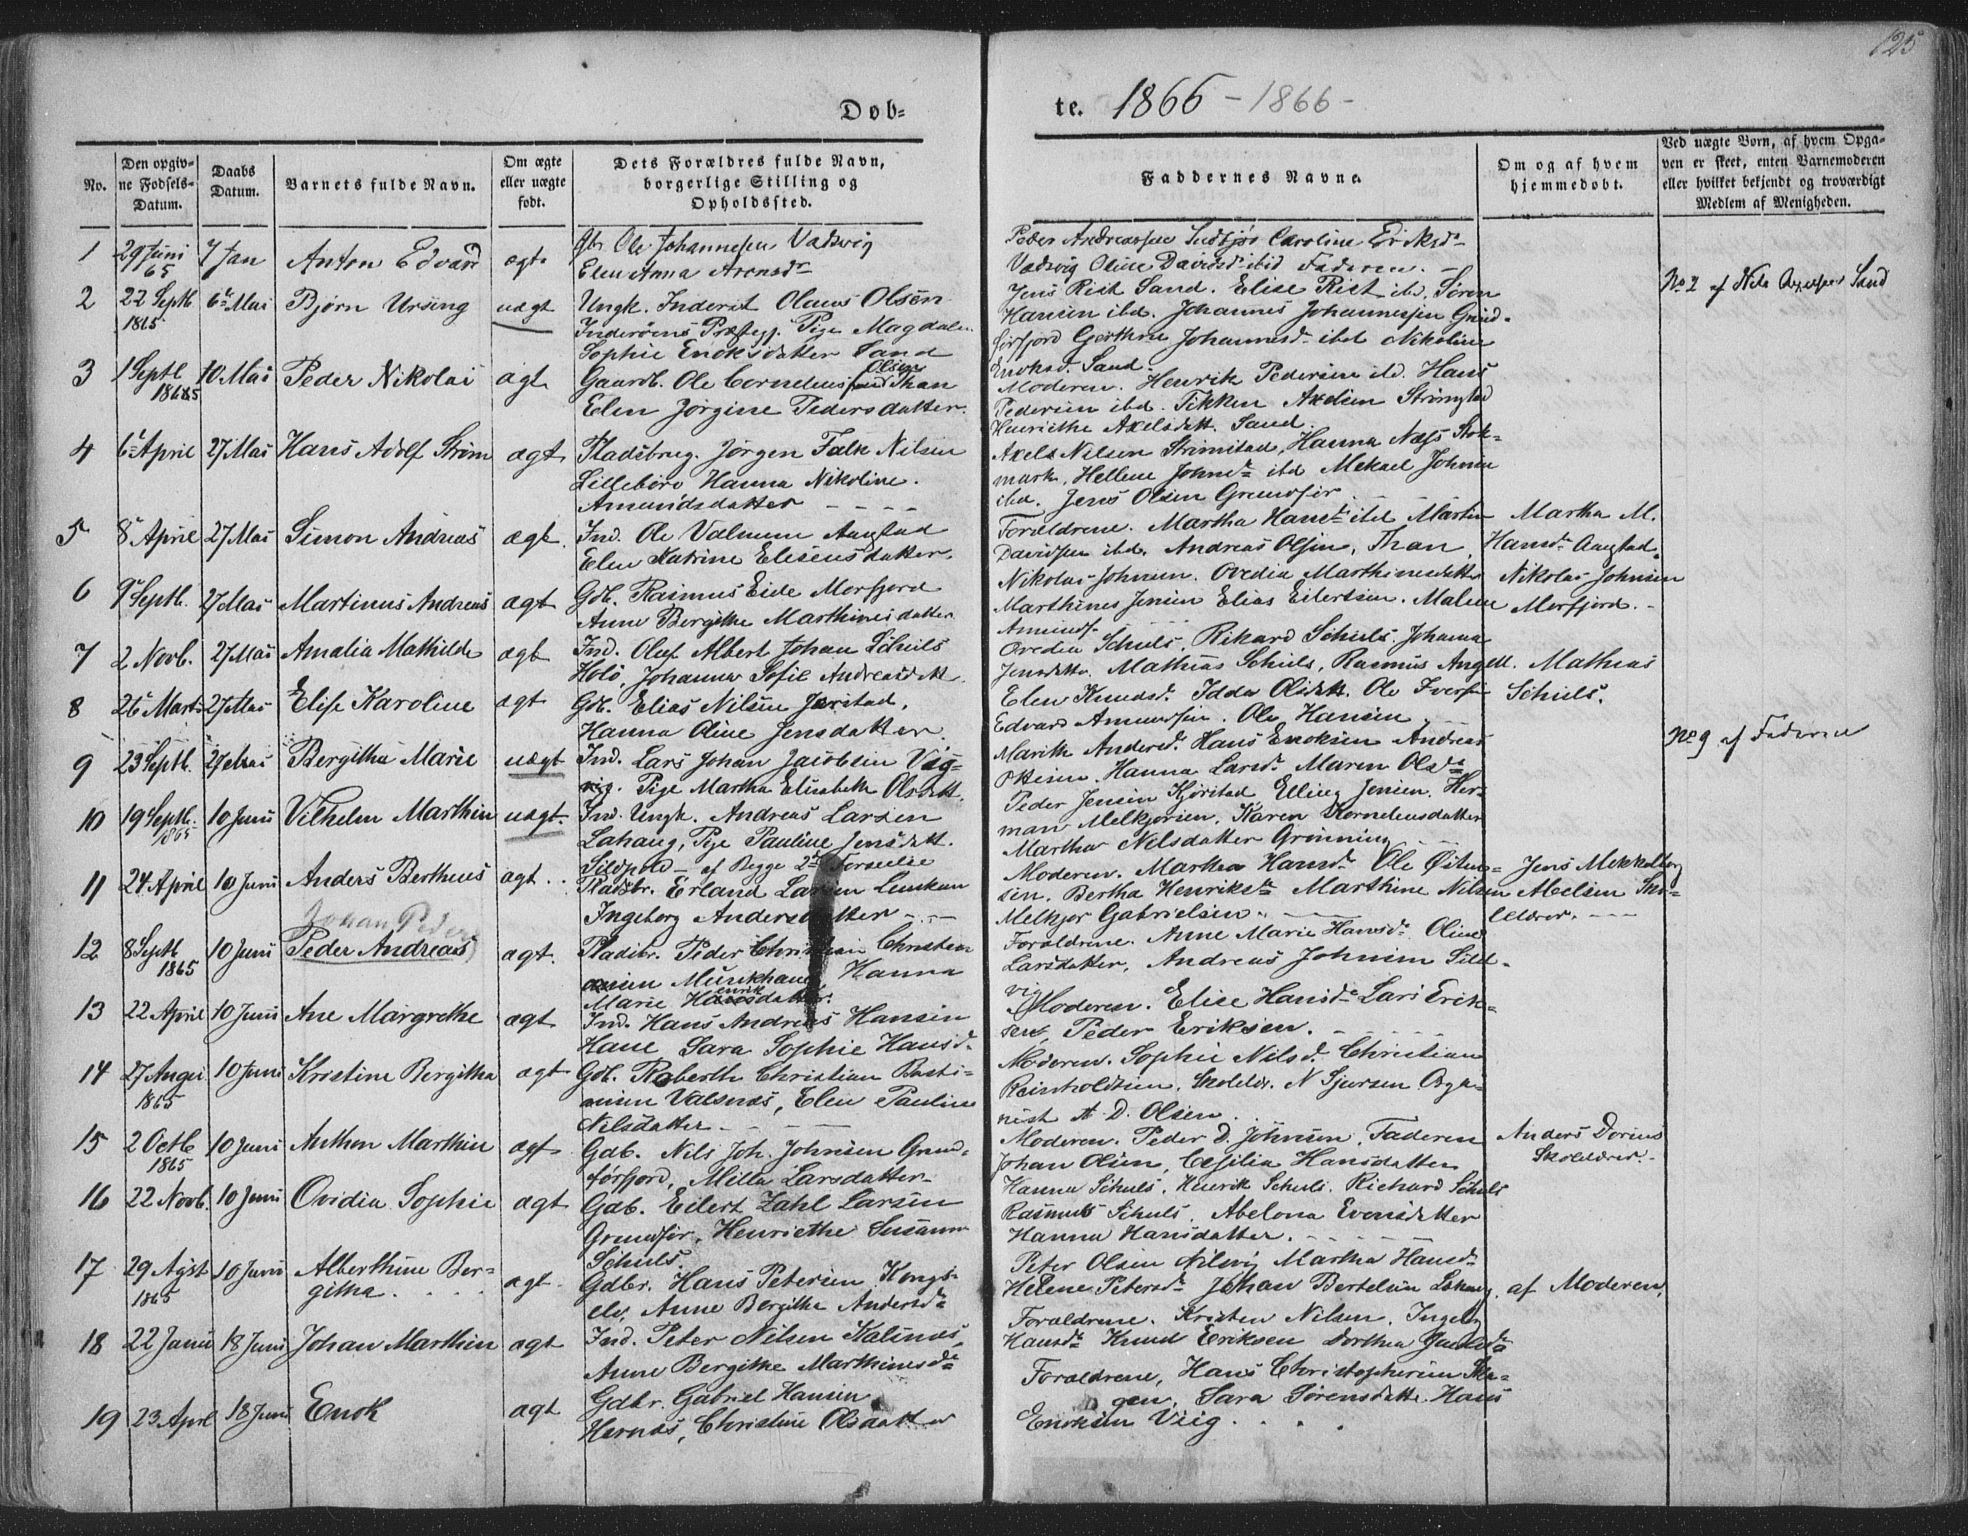 125
Døb-
te. 1866 - 1866 -
No.
Den opgiv-
ne Fødsels-
Datum.
Daabs
Datum.
Barnets fulde Navn.
Om ægte
eller uægte
født.
Dets Forældres fulde Navn,
borgerlige Stilling og
Opholdssted.
Faddernes Navne.
Om og af hvem
hjemmedøbt.
Ved uægte Børn, af hvem Opga-
ven er skeet, enten Barnemoderen
eller hvilket bekjendt og troværdigt
Medlem af Menigheden.
1
29 Juni
65
7 Jan
Anton Edvard
ægte
Gbr Ole Johannesen Vadsvig
Elen Anna Arensdr
Peder Andreassen Caroline Eriksdr
Vadsvig Oline Davidsd ibid Faderen.
2
22 Septb
1865
6te Mai
Bjørn Ursing
uægt
Ungk. Inderst Olaus Olsen
Inderøens Præstegj. Pige Magdale
Sophie Enoksdatter Sand
Jens Rist Sand. Elise Rist ibd. Søren
Hansen ibd. Johannes Johannessen Grund-
førfjord Johannesd ibd Nikoline
Enoksd. Sand.
No 2 af Nils Sand
3
1 Septb
1865
10 Mai
Peder Nikolai
ægt
Gaardb. Ole Cornelius Olsen Than
Elen Jørgine Pedersdatter.
Moderen. Henrik Pedersen ibd. Hans
Pedersen ibd. Tikken Axelsen Strømstad
Henriethe Axelsdatt. Sand.
4
6te April
27 Mai
Hans Adolf Strøm
ægt
Pladsbrug. Jørgen Falk Nilsen
Lillebøro Hanna Nikoline.
Amundsdatter
Axels Nilsen Strømstad, Hanna Næss Stok-
mark, Hellene Johnsd ibd Mekael Johnsen
ibd. Jens Olsen Grundfør
5
8 April
27 Mai
Simon Andreas
ægt.
Ind. Ole Valnum Aangstad
Elen Katrine Elisensdatter.
Forældrene. Martha Hansd ibd Martin
Davidsen ibd. Andreas Olsen, Than
Martha M.
Hansd. Aangstad.
6
9 Septb.
27 Mai
Martinus Andreas
ægt
Gdb. Rasmus Eide Morfjord
Anne Bergithe Marthinesdatter
Nikolai Johnsen. Ovedia Marthinesdatter
Marthines Jensen Elias Eilertsen. Malene
Amunds
Nikolai Johnsen
Morfjord.
7
2 Novb.
27 Mai
Amalia Mathilde
ægt
Ind. Oluf Albert Johan Schiels
Holø, Johanna Sofie Andreasdatt
Ovedia Schuls, Rikard Schuls. Johanna
Jensdatte. Mathias Schiels, Rasmus Angell.
Mathias
Schiels.
8
26 Marts
27 Mai
Elise Karoline
ægt
Gdb. Elias Nilsen Jørstad.
Hanna Oline Jensdatter.
Elen Knudsd. Idda Olsdatt. Ole Iversen
Edvard Amundsen. Ole Hansen
9
23 Septb.
27 Mai
Bergitha Marie
uægt
Ind. Lars Johan Jacobsen Vag-
vig. Pige Martha Elisabeth Olsdatt.
Marith Andersd. Hans Enoksen Andreas
Ottesen. Hanna Larsd. Maren Olsd
No 9 af Faderen
10
19 Septb.
1865
10 Juni
Vilhelm Marthin
uægt.
Ind. Ungk. Andreas Larsen
Lahaug, Pige Pauline Jensdatt.
Sildpold. af Begge 2d Forseelse
Peder Jensen Kjørstad Elling Jensen. Her-
man Melkjorsen, Karen Korneliusdatter
Martha Nilsdatter Grønning
11
24 April
10 Juni
Anders Bertheus
ægt.
Pladsbr. Erland Larsen Lunkan
Ingeborg Andersdatter
Moderen. Martha Hansd. Ole Østen-
sen. Bertha Henriksd Marthine Nilsen
Melkjor Gabrielsen.
Jens Mekkelborg
Abelsen Sko-
lelærer.
12
8 Septb
1865
10 Juni
Johan Peder
Peder Andreas
ægt.
Pladsbr. Peder Christian Christian
sen Munkhaug, Hanna
Marie Henriksdatter.
Forældrene. Anne Marie Hansd. Oline
Larsdatter, Andreas Johnsen Sild-
vig
13
22 April
10 Juni
Ane Margrethe
ægt
Ind. Hans Andreas Hansen
Hane Sara Sophie Hansd.
Moderen. Elise Hansd. Lars Erik-
sen, Peder Eriksen.
14
27 Augu
1865
10 Juni
Kristine Bergitha
ægt
Gdb. Roberth Christian Basti-
ansen Valsnæs, Elen Pauline
Nilsdatter
Moderen. Sophie Nilsd. Christian
Reinholdtsen. Skolelr. N Sjursen Orga-
nist A. D. Olsen.
15
2 Octb
1865
10 Juni
Anthon Marthin
ægt
Gdb. Nils Joh. Johnsen Grund-
førfjord, Milla Larsdatter
Moderen. Peder D. Johnson. Faderen
Johan Olsen, Cesilia Hansdatter
Anders Dorius
Skolelærer.
16
22 Novb.
10 Juni
Ovidia Sophie
ægt
Gdb. Eilert Zahl Larsen
Grundfør, Henriethe Susanna
Schiels.
Hanna Schuls. Henrik Schuls. Richard Schuls
Rasmus Schuls. Abelona Evensdatter
Hanna Hansdatter.
17
29 Agst
1865
10 Juni
Alberthine Ber-
githa.
ægt
Gdbr. Hans Petersen Kongs-
elv, Anne Bergithe Andersd
Peter Olsen Martha Hansd
Helene Petersd. Johan Bertelsen Lahaug.
af Moderen.
18
22 Janu
18 Juni
Johan Marthin
ægt
Ind. Peter Nilsen Kalsnæs,
Anne Bergithe Marthinesd
Forældrene. Kristen Nilsen. Ingeb
Hansd Knud Eriksen Dorthea
19
23 April
18 Juni
Enok
ægt
Gdbr. Gabriel Hansen
Hernæs, Christine Olsdatter
Forældrene, Hans Christophersen Ska-
gen, Sara Sørensdatte. Hans
Enoksen Viig.